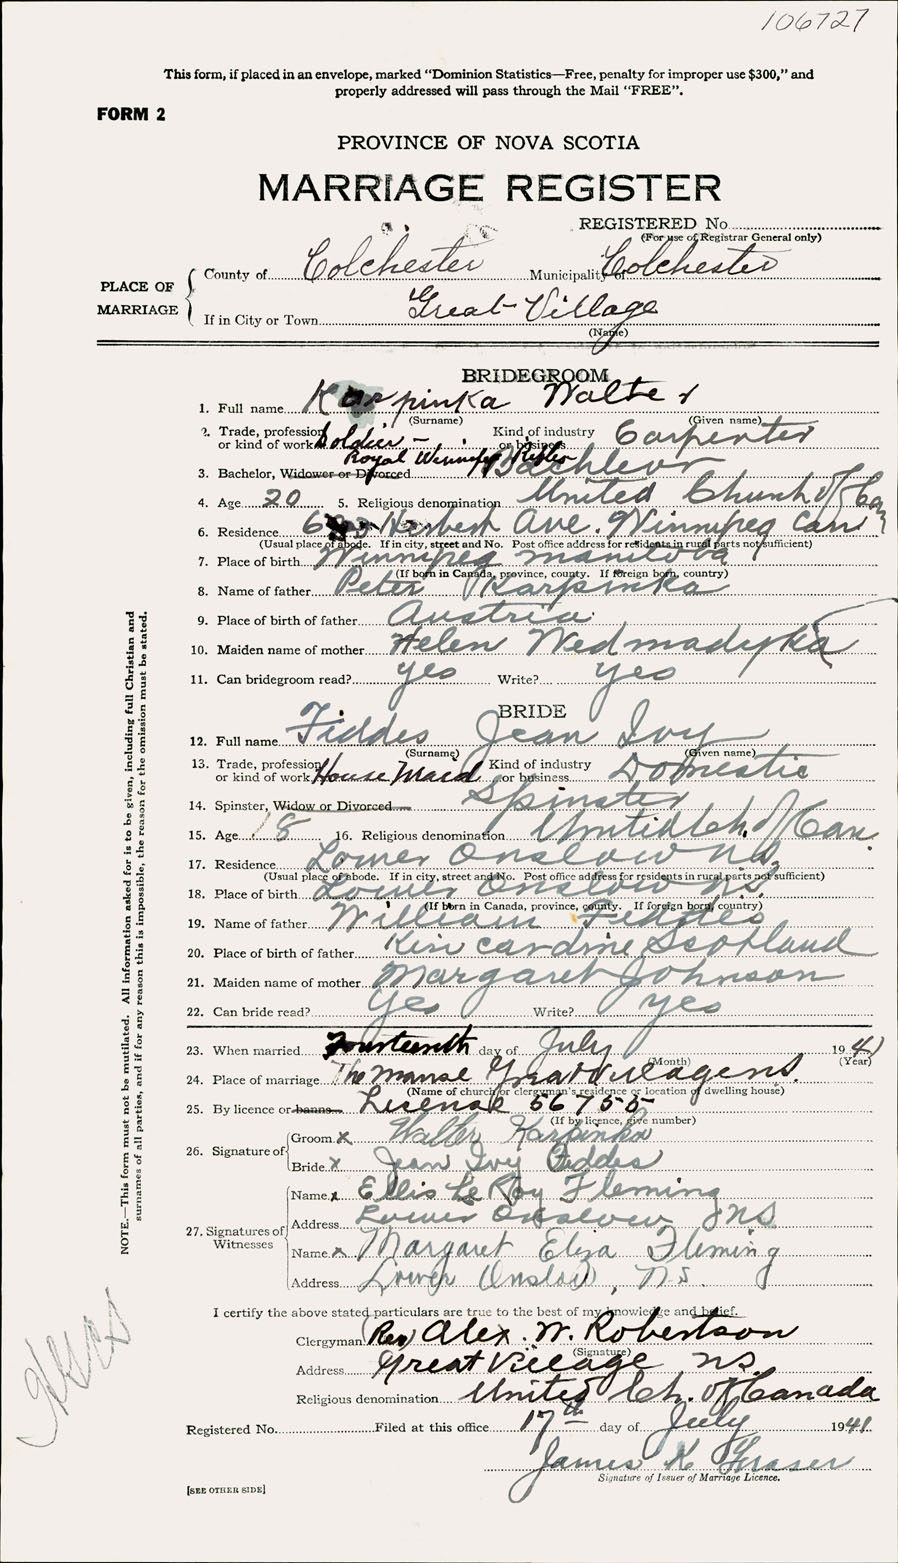 106727
This form, if placed in an envelope, marked “Dominion Statistics—Free, penalty for improper use $300,” and
properly addressed will pass through the Mail “FREE”.
FORM 2
PROVINCE OF NOVA SCOTIA
MARRIAGE REGISTER
REGISTERED No
(For use of Registrar General only)
PLACE OF MARRIAGE
County of Colchester Municipality of Colchester
If in City or Town Great Village
(Name)
BRIDEGROOM
1. Full name Karpinka Walter
(Surname) (Given name)
2. Trade, profession or kind of work Soldier - Royal Winnipeg Rifles Kind of industry or business Carpenter
3. Bachelor, Widower or Divorced Bachleor
4. Age 20 5. Religious denomination United Church of Can
6. Residence Herbert Ave. Winnipeg Can
(Usual place of abode. If in city, street and No. Post office address for residents in rural parts not sufficient)
7. Place of birth Winnipeg Manitoba
(If born in Canada, province, county. If foreign born, country)
8. Name of father Peter Karpinka
9. Place of birth of father Austria
10. Maiden name of mother Helen Wedmadyka
11. Can bridegroom read? yes Write? yes
BRIDE
12. Full name Fiddes Jean Ivy
(Surname) (Given name)
13. Trade, profession or kind of work House Maid Kind of industry or business Domestic
14. Spinster, Widow or Divorced Spinster
15. Age 18 16. Religious denomination United Ch. of Can.
17. Residence Lower Onslow N.S.
(Usual place of abode. If in city, street and No. Post office address for residents in rural parts not sufficient)
18. Place of birth Lower Onslow N.S.
(If born in Canada, province, county. If foreign born, country)
19. Name of father William Fiddes
20. Place of birth of father Kincardine Scotland
21. Maiden name of mother Margaret Johnson
22. Can bride read? Yes Write? yes
23. When married Fourteenth day of July 1941
(Month) (Year)
24. Place of marriage The manse Great Village N.S.
(Name of church or clergyman's residence or location of dwelling house)
25. By licence or banns License 56755
(If by licence, give number)
26. Signature of
Groom x Walter Karpinka
Bride x Jean Ivy Fiddes
27. Signatures of Witnesses
Name x Ellis Le Roy Fleming
Address Lower Onslow NS
Name x Margaret Eliza Fleming
Address Lower Onslow, N.S.
I certify the above stated particulars are true to the best of my knowledge and belief.
Clergyman Rev Alex. W. Robertson
(Signature)
Address Great Village N.S.
Religious denomination United Ch. of Canada
Registered No. Filed at this office 17th day of July 1941
James K Fraser
Signature of Issuer of Marriage Licence.
[SEE OTHER SIDE]
NOTE.—This form must not be mutilated. All information asked for is to be given, including full Christian and
surnames of all parties, and if for any reason this is impossible, the reason for the omission must be stated.